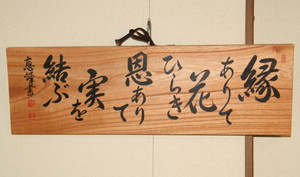 縁
ありて
花
ひらき
恩あり
て
実を
結ぶ